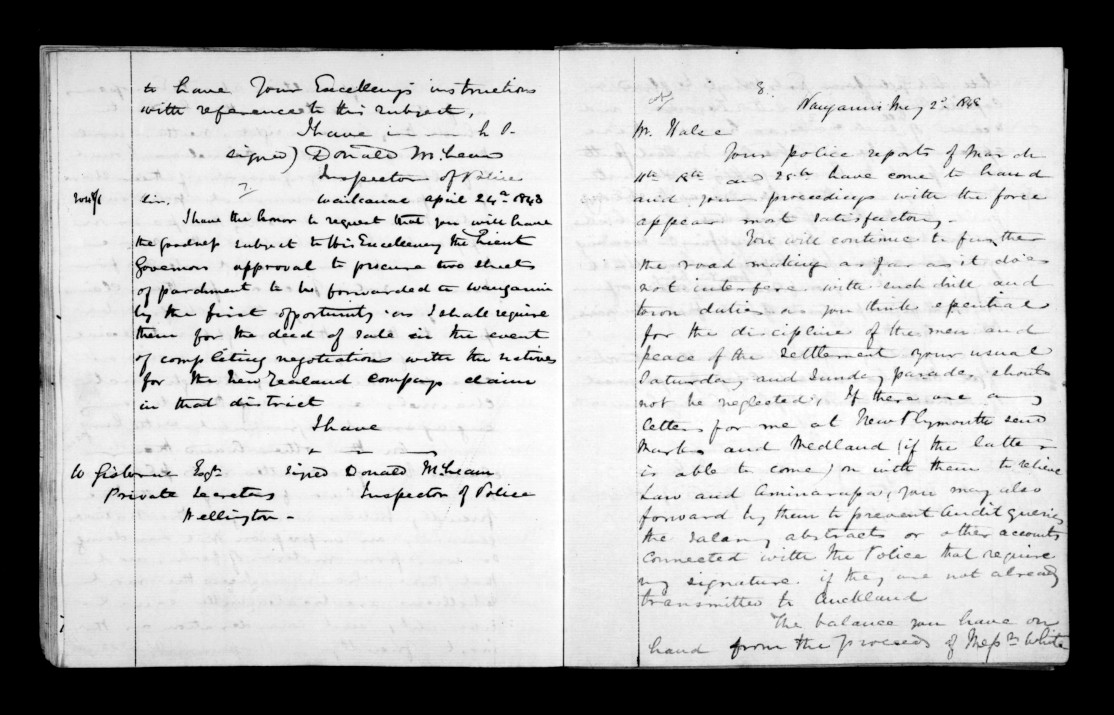 to have Your Excellency's instructions
with reference to this subject,
I have
signed) Donald McLean
Inspector of Police
7/
Sir, Waikanae april 24th 1848
I have the honor to request that you will have
the goodness submit to His Excellency the Lieut
Governors approval to procure two sheets
of parchment to be forwarded to Wanganui
by the first opportunity as I shall require
them for the deed of sale in the event
of completing negotiations with the natives
for the New Zealand Companys claim
in that district
I have
W Gisborne Esqre signed Donald McLean
Private Secretary Inspector of Police
Wellington -
8.
Wanganui May 2d 1848
Mr. Halse
Your police reports of March
11th 18th and 25th have come to hand
and your proceedings with the force
appear most satisfactory.
You will continue to further
the road making as far as it does
not interfere with such drill and
town duties as you think essential
for the discipline of the men and
peace of the settlement your usual
Saturday and Sunday parades should
not be neglected, If there are any
letters for me at New Plymouth send
and Medland (if the latter
is able to come) on with them to relieve
Law and you may also
forward by them to prevent Audit queries
the salary abstracts or other accounts
connected with the Police that require
my signature if they are not already
transmitted to Auckland
The balance you have on
hand from the proceeds of Messrs White